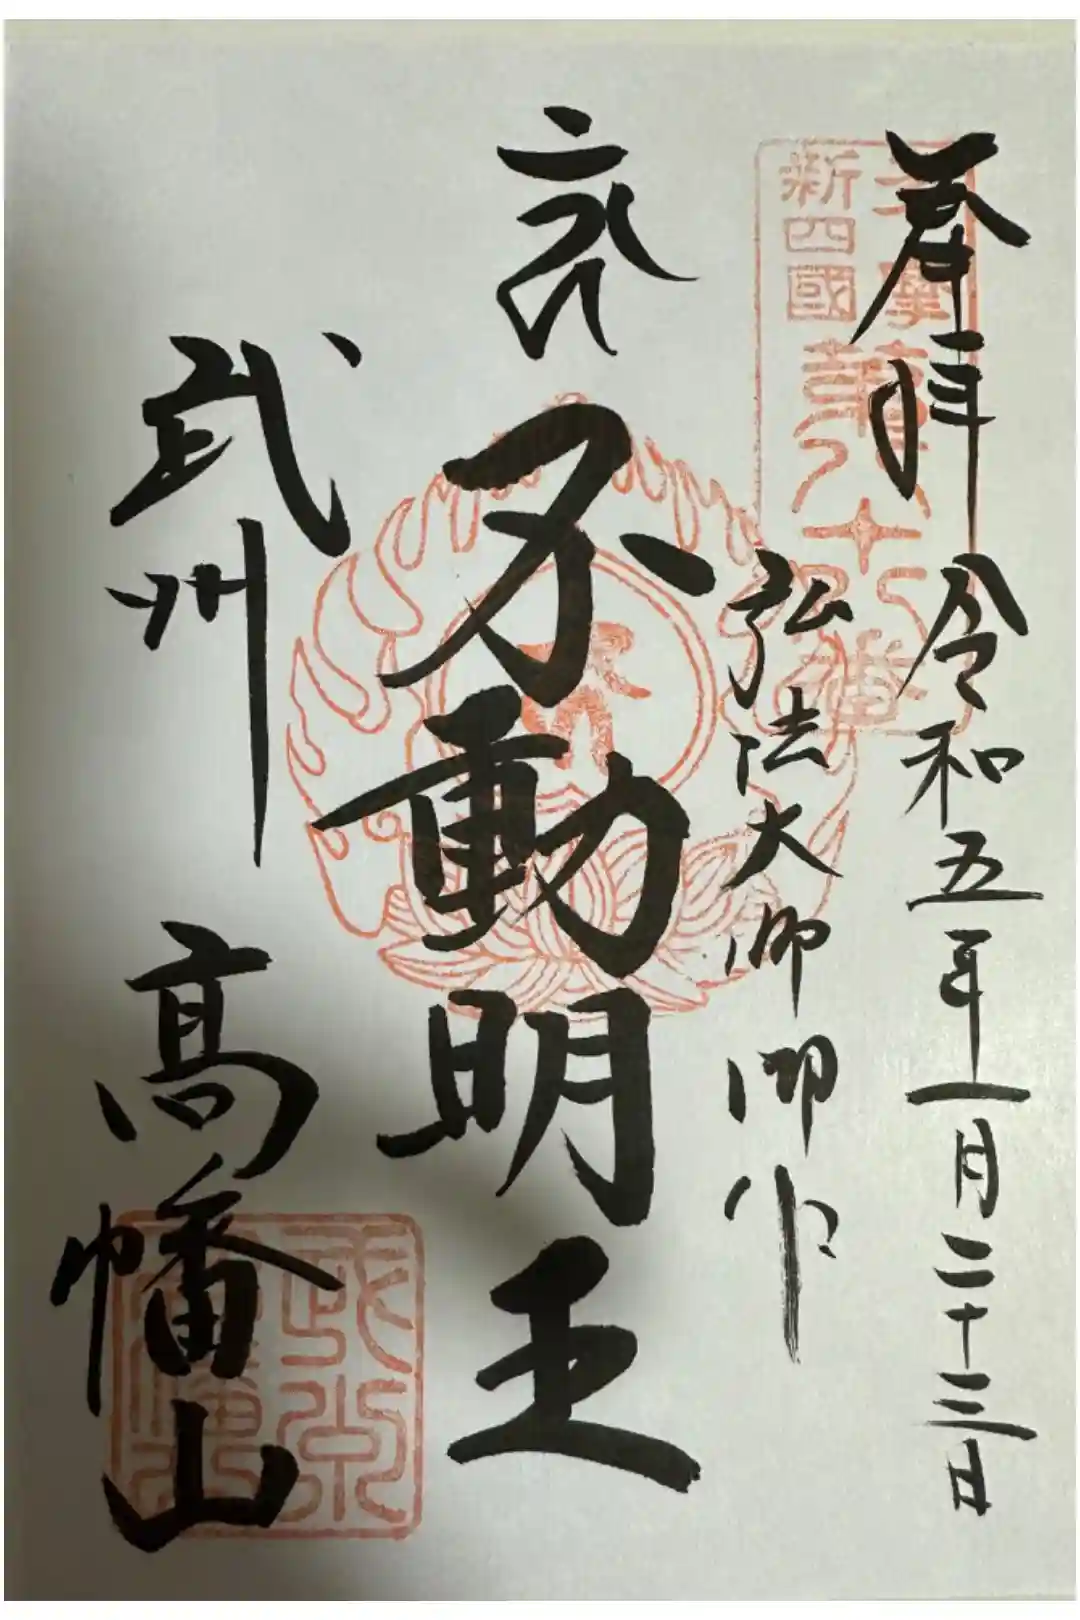 奉拝 令和五年一月二十三日
多摩
新四國
第八十八番
弘法大師御
不動明王
武州 高幡山